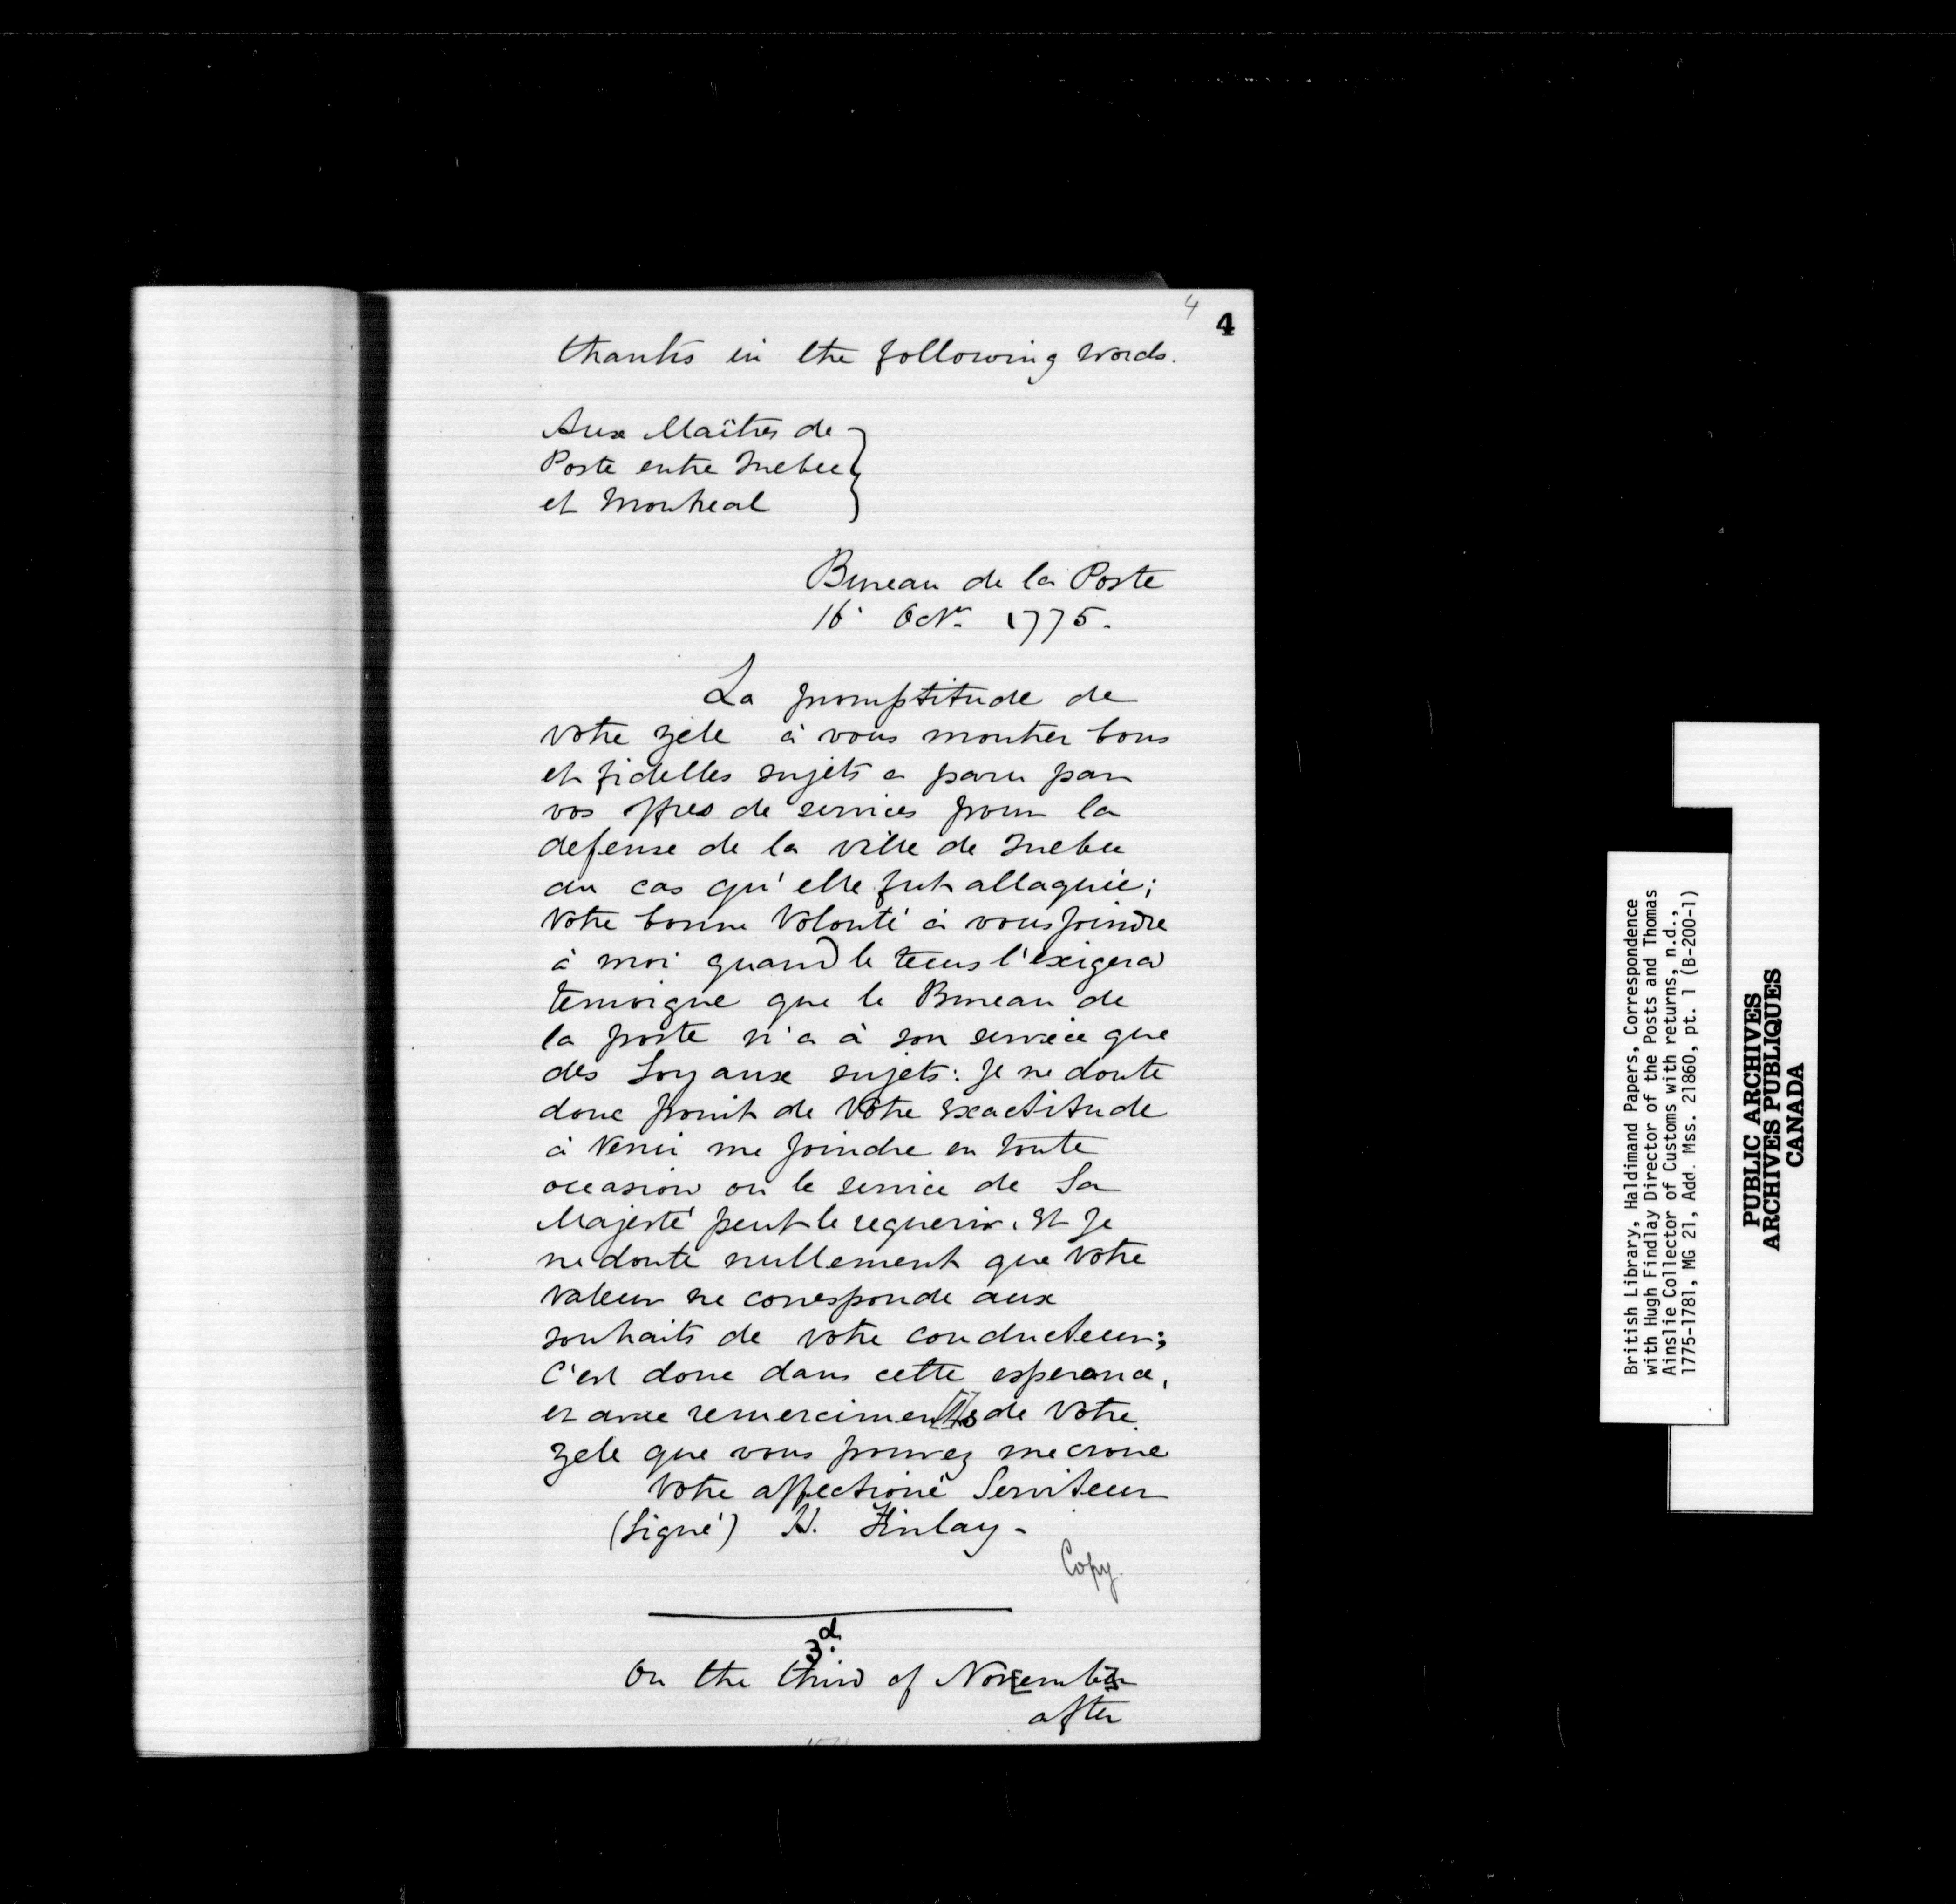 4
4
thanks in the following words.
Aux Maîtres de
Poste entre Quebec
et Montreal
Bureau de la Poste
16. Octr. 1775.
La promptitude de
votre zele à vous montrer bons
et fidelles sujets a paru par
vos offres de services pour la
defense de la ville de Quebec
au cas qu'elle fut attaquée;
Votre bonne Volonté à vous joindre
à moi quand le tems l'exigera
temoigne que le Bureau de
la poste n'a à son service que
des Loyaux sujets: Je ne doute
donc point de Votre exactitude
à Venir me joindre en toute
occasion ou le service de Sa
Majesté peut le requerir. Et Je
ne doute nullement que Votre
Valeur ne corresponde aux
souhaits de votre conducteur;
C'est donc dans cette esperance,
et avec remerciments de Votre
zele que vous pouvez me croire
Votre affectioné Serviteur
(Signé) H. Finlay -
Copy.
3d.
On the third of November
after
British Library, Haldimand Papers, Correspondence
with Hugh Findlay Director of the Posts and Thomas
Ainslie Collector of Customs with returns, n.d.,
1775-1781, MG 21, Add. Mss. 21860, pt. 1 (B-200-1)
PUBLIC ARCHIVES
ARCHIVES PUBLIQUES
CANADA